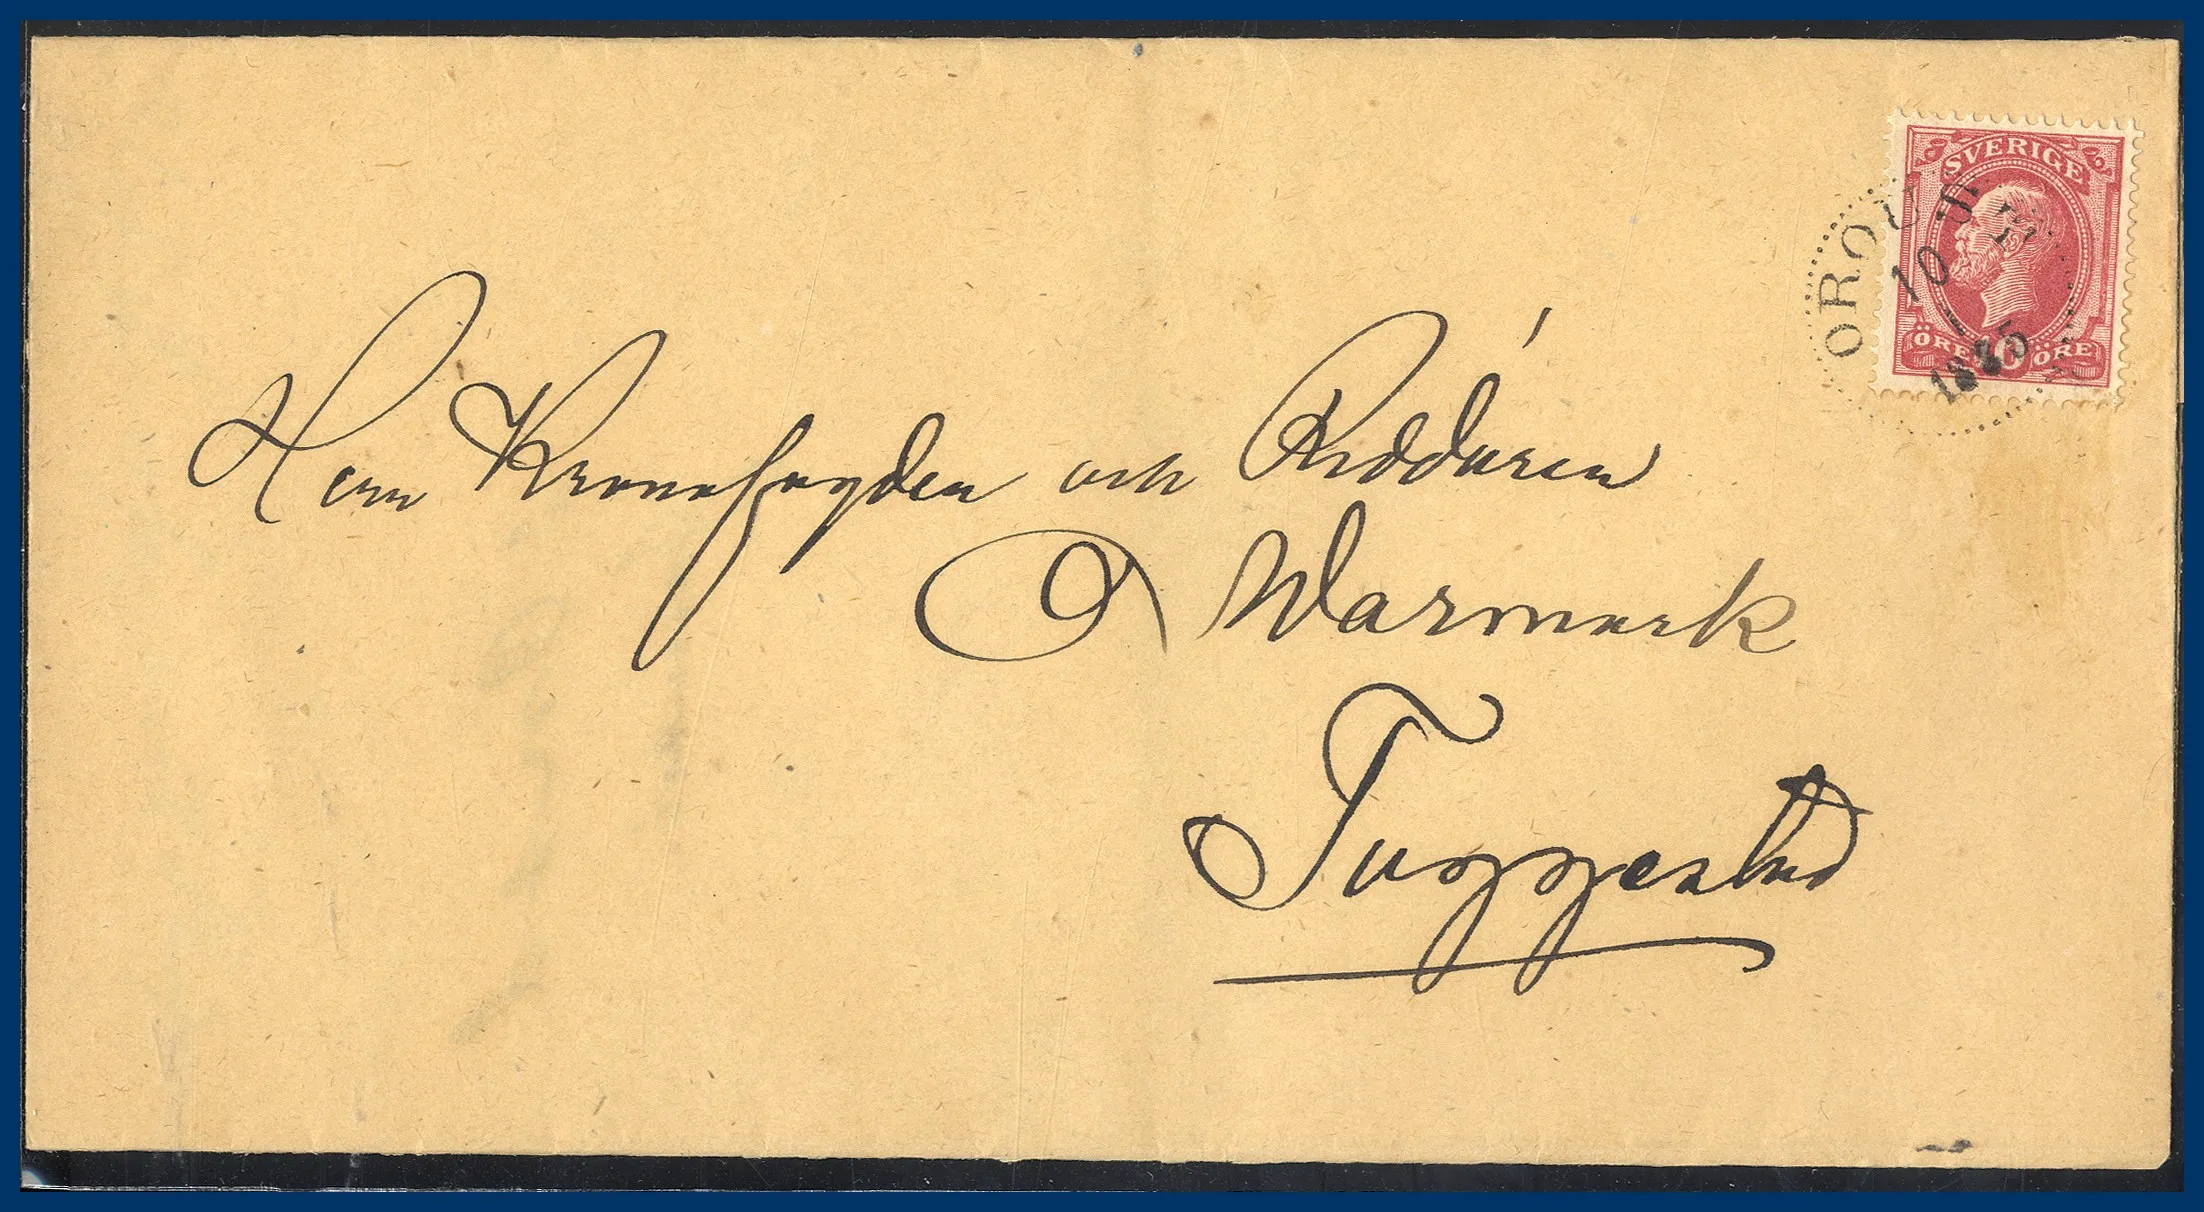 SVERIGE
ÖRE 10 ÖRE
OROUST
10
1885
Herr Kronofogden och Riddaren
O Warmark
Tuggestad